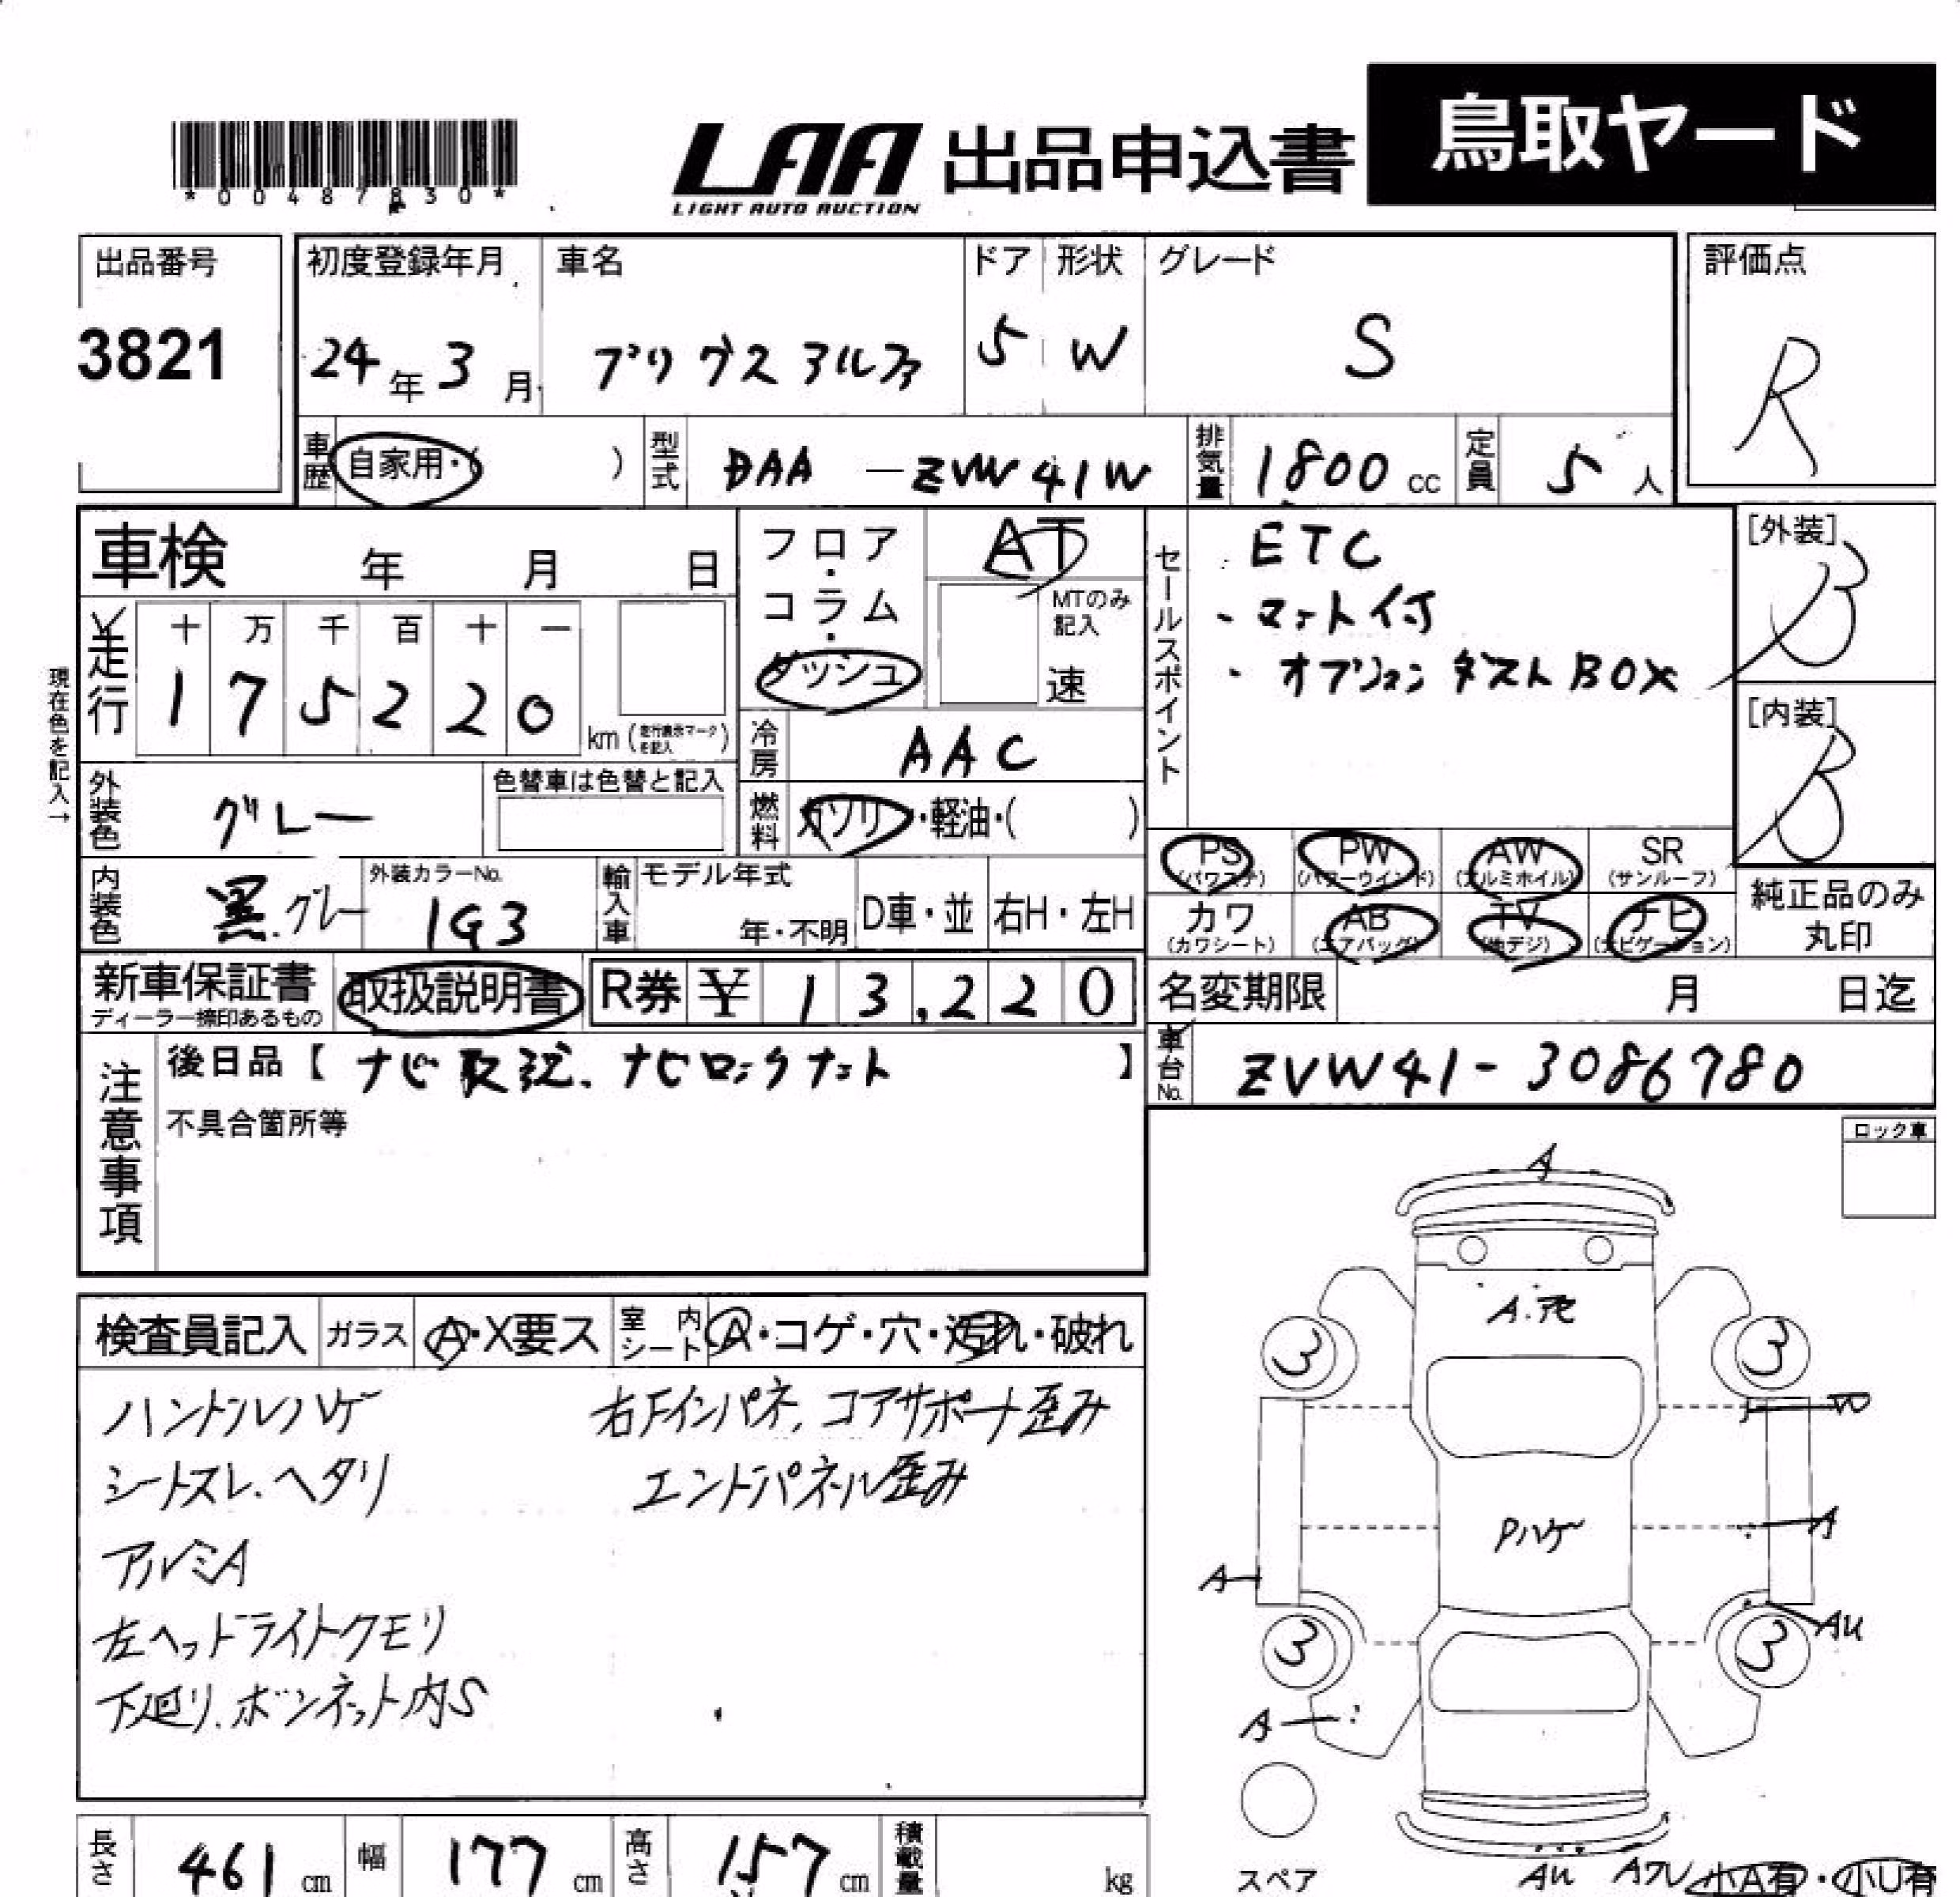 鳥取ヤード
LAA 出品申込書
LIGHT AUTO AUCTION
*00487830*
出品番号
3821
初度登録年月
24年3月
車名
プリウスアルファ
ドア
5
形状
W
グレード
S
評価点
R
車歴 自家用・( )
型式 DAA-ZVW41W
排気量 1800cc
定員 5人
車検 年 月 日
フロア・コラム・ダッシュ
AT
MTのみ記入
速
セールスポイント
・ETC
・マット付
・オプション ダストBOX
[外装]
B
[内装]
B
現在色を記入→
走行
十 万 千 百 十 一
1 7 5 2 2 0
km(走行表示マークを記入)
冷房 AAC
外装色 グレー
色替車は色替と記入
燃料 ガソリン・軽油・( )
PS (パワステ)
PW (パワーウインド)
AW (アルミホイル)
SR (サンルーフ)
カワ (カワシート)
AB (エアバッグ)
TV (地デジ)
ナビ (ナビゲーション)
純正品のみ丸印
内装色 黒.グレー
外装カラーNo.
1G3
輸入車
モデル年式
年・不明
D車・並
右H・左H
新車保証書
ディーラー捺印あるもの
取扱説明書
R券 ¥ 13,220
名変期限 月 日迄
車台No. ZVW41-3086780
注意事項
後日品【ナビ取説、ナビロックナット】
不具合箇所等
ロック車
検査員記入
ガラス A・X要ス
室内シート A・コゲ・穴・汚れ・破れ
ハンドルハゲ
シートスレ.ヘタリ
アルミA
左ヘッドライトクモリ
下廻り.ボンネット内S
右Fインパネ,コアサポート歪み
エンドパネル歪み
A
3 3
W
Pハゲ
A
A
AU
3 3
A
スペア
AU
小A有・小U有
長さ 461cm
幅 177cm
高さ 157cm
積載量 kg